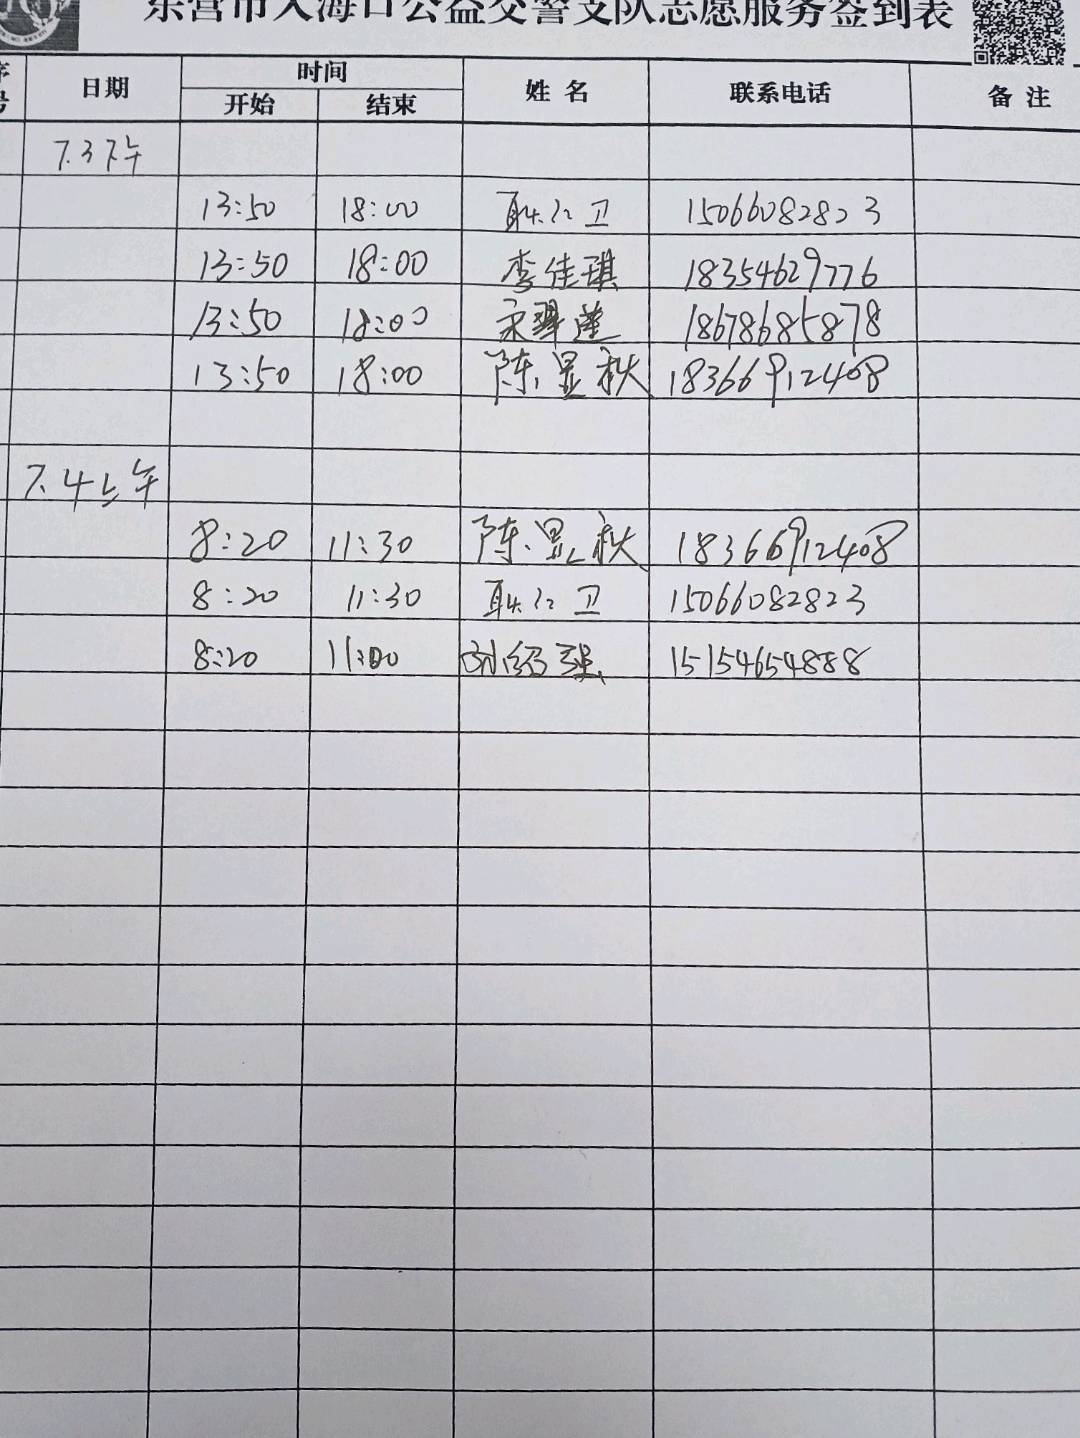 东营市入海口公益交警支队志愿服务签到表
序号 日期 时间 姓名 联系电话 备注
开始 结束
7.3下午
13:50 18:00 耿仁卫 15066082823
13:50 18:00 李佳琪 18354629776
13:50 18:00 18678685878
13:50 18:00 陈昱秋 18366912408
7.4上午
8:20 11:30 陈昱秋 18366912408
8:20 11:30 耿仁卫 15066082823
8:20 11:00 孙绍强 15154654888